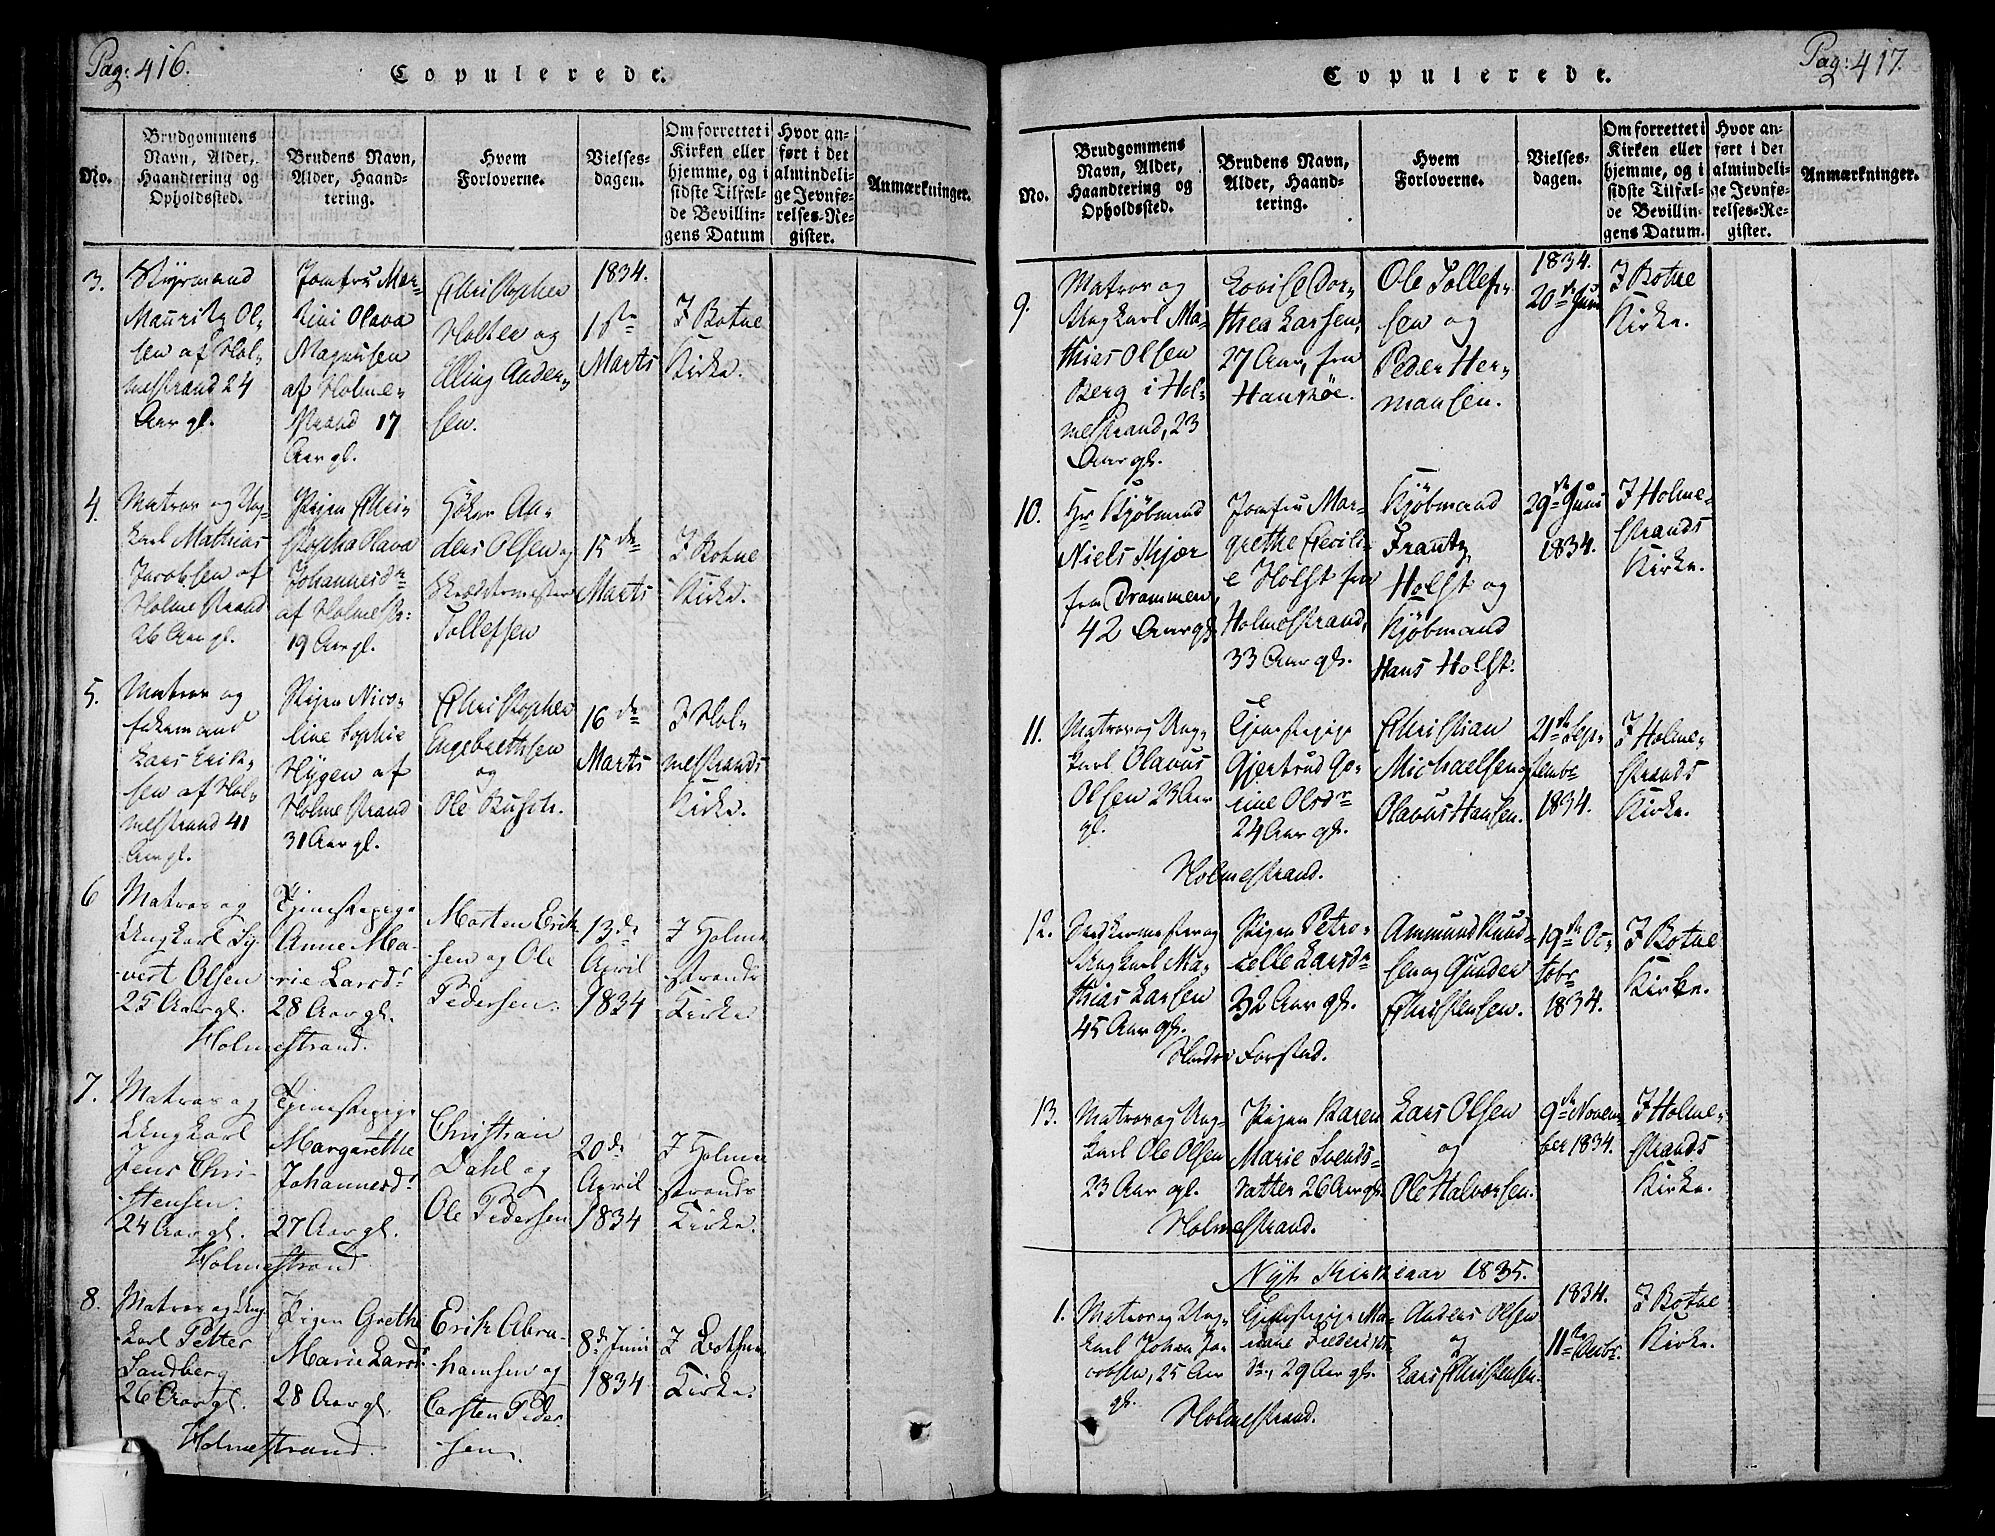 Pag: 416.
Copulerede.
No.
Brudgommens
Navn, Alder,
Haandtering og
Opholdssted.
Brudens Navn,
Alder, Haand-
tering.
Hvem
Forloverne.
Vielses-
dagen.
Om forrettet i
Kirken eller
hjemme, og i
sidste Tilfæl-
de Bevillin-
gens Datum
Hvor an-
ført i det
almindeli-
ge Jevnfø-
relses-Re-
gister.
Anmærkninger.
3.
Styrmand
Mauritz Ol-
sen af Hol-
mestrand 24
Aar gl.
Jomfru Mar-
tini Olava
Magnusen
af Holme-
strand 17
Aar gl.
Christopher
Holter og
Elling Ander-
sen.
1834.
1ste
Marts
I Botne
Kirke.
4.
Matros og Ung-
karl Mathias
Jacobsen af
Holmestrand
26 Aar gl.
Pigen Chri-
stopha Olava
Johannesdr
af Holmestr:
19 Aar gl.
Høker An-
ders Olsen og
Skrædermester
Tollefsen
15de
Marts
I Botne
Kirke.
5.
Matros og
Enkemand
Lars Erik-
sen af Hol-
mestrand 41
Aar gl.
Pigen Nico-
line Sophie
Hygen af
Holmestrand
31 Aar gl.
Christopher
Engebrethsen
og
Ole Busch.
16de
Marts
I Hol-
mestrands
Kirke.
6
Matros og
Ungkarl Sy-
vert Olsen
25 Aar gl.
Tjenestepige
Anne Ma-
rie Larsdr
28 Aar gl.
Holmestrand.
Morten Erik-
sen og Ole
Pedersen.
13de
April
1834
I Holme-
strands
Kirke.
7.
Matros og
Ungkarl
Jens Chri-
stensen.
24 Aar gl.
Tjenestepige
Margarethe
Johannesdr
27 Aar gl.
Holmestrand
Christian
Dahl og
Ole Pedersen
20de
April
1834
I Holme-
strands
Kirke.
8.
Matros og Ung-
karl Petter
Sandberg
26 Aar gl.
Pigen Grethe
Marie Larsdr
28 Aar gl.
Holmestrand.
Erik Abra-
hamsen og
Carsten Peder-
sen.
8de Juni
1834
I Bothne
Kirke.
Pag: 417.
Copulerede.
No.
Brudgommens
Navn, Alder,
Haandtering og
Opholdssted.
Brudens Navn,
Alder, Haand-
tering.
Hvem
Forloverne.
Vielses-
dagen.
Om forrettet i
Kirken eller
hjemme, og i
sidste Tilfæl-
de Bevillin-
gens Datum.
Hvor an-
ført i det
almindeli-
ge Jevnfø-
relses-Re-
gister.
Anmærkninger.
9.
Matros og
Ungkarl Ma-
thias Olsen
Berg i Hol-
mestrand, 23
Aar gl.
Lovise Dor-
thea Larsen,
27 Aar, fra
Hanskøe.
Ole Tollef-
sen og
Peder Her-
mansen.
1834.
20de Juni
I Botne
Kirke.
10.
Hr Kjøbmand
Niels Kjær
fra Drammen,
42 Aar gl.
Jomfru Mar-
grethe Cecili-
e Holst fra
Holmestrand,
33 Aar gl.
Kjøbmand
Frantz
Holst og
Kjøbmand
Hans Holst.
29de Juni
1834.
I Holme-
strands
Kirke.
11.
Matros og Ung-
karl Olavus
Olsen 23 Aar
gl.
Tjenestepige
Gjertrud Go-
rine Olsdr
24 Aar gl.
Holmestrand.
Christian
Michaelsen og
Olavus Hansen.
21de Sep-
tembr
1834.
I Holme-
strands
Kirke.
12.
Snedkermester og
Ungkarl Ma-
thias Larsen
45 Aar gl.
Pigen Petro-
nelle Larsdr
32 Aar gl.
Nordre Forstad.
Ammund Knud-
sen og Gunder
Christensen.
19de Oc-
tobr
1834.
I Botne
Kirke.
13.
Matros og Ung-
karl Ole Olsen
23 Aar gl.
Pigen Karen
Marie Svends-
datter 26 Aar gl.
Holmestrand.
Lars Olsen
og
Ole Halvorsen.
9de Novem-
ber 1834.
I Holme-
strands
Kirke.
Nyt Kirkeaar 1835.
1.
Matros og Ung-
karl Johan Ja-
cobsen, 25 Aar
gl.
Tjenestepige Ma-
riane Frederiks-
dr, 29 Aar gl.
Holmestrand.
Anders Olsen
og
Lars Christensen.
1834.
11te Decbr.
I Botne
Kirke.